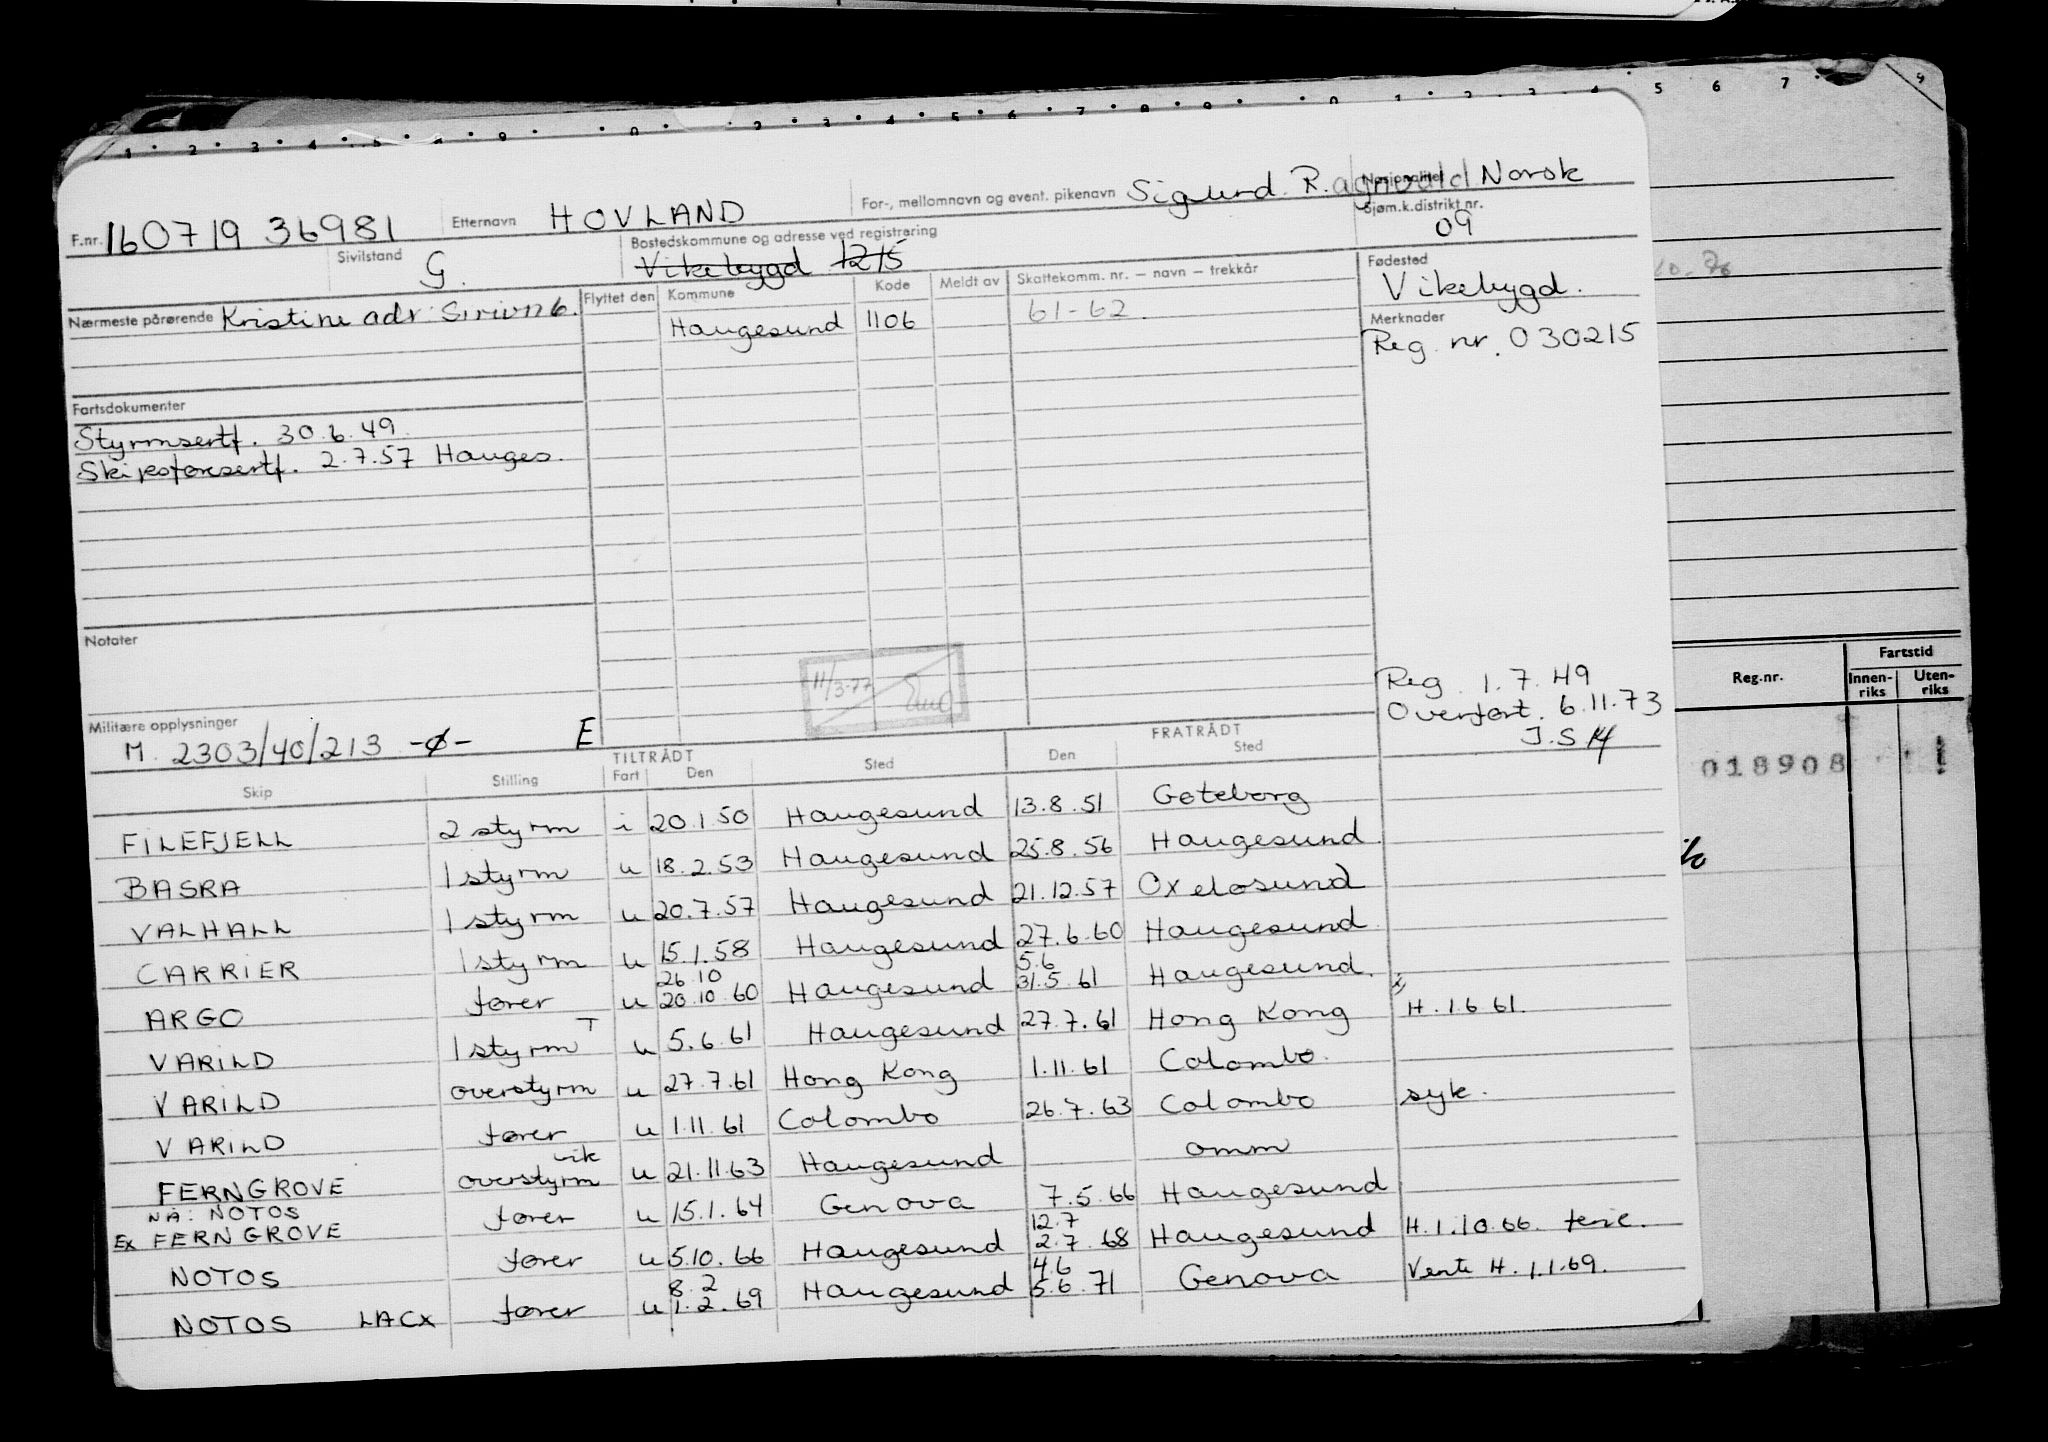 F.nr. 160719 36981 Etternavn HOVLAND For-, mellomnavn og event. pikenavn Sigurd. R.agnvald Nasjonalitet Norsk
Sivilstand G. Bostedskommune og adresse ved registrering Vikebygd 1215 Sjøm.k.distrikt nr. 09
Nærmeste pårørende Kristine adr: Flyttet den Kommune Kode Meldt av Skattekomm. nr. – navn – trekkår Fødested Vikebygd.
Haugesund 1106 61-62. Merknader
Reg. nr. 030215
Fartsdokumenter
Styrmsertf. 30.6.49.
Skipsføresertf. 2.7.57 Hauges.
Notater
11/3-77
Reg. 1.7.49
Overført. 6.11.73
J.S
Militære opplysninger
M. 2303/40/213 -ø- E
TILTRÅDT FRATRÅDT
Skip Stilling Fart Den Sted Den Sted
FILEFJELL 2 styrm i 20.1.50 Haugesund 13.8.51 Gøteborg
BASRA 1 styrm u 18.2.53 Haugesund 25.8.56 Haugesund.
VALHALL 1 styrm u 20.7.57 Haugesund 21.12.57 Oxeløsund
CARRIER 1 styrm u 15.1.58 Haugesund 27.6.60 Haugesund.
26.10 5.6
ARGO fører u 20.10.60 Haugesund 31.5.61 Haugesund.
VARILD 1 styrm T u 5.6.61 Haugesund 27.7.61 Hong Kong H. 1.6 61.
VARILD overstyrm u 27.7.61 Hong Kong 1.11.61 Colombo.
VARILD fører u 1.11.61 Colombo 26.7.63 Colombo syk.
vik
FERNGROVE overstyrm u 21.11.63 Haugesund omm
NÅ: NOTOS
Ex FERNGROVE fører u 15.1.64 Genova 7.5.66 Haugesund
12.7
NOTOS fører u 5.10.66 Haugesund 2.7.68 Haugesund H. 1.10.66. ferie.
8.2 4.6
NOTOS LACX fører u 1.2.69 Haugesund 5.6.71 Genova Vente H. 1.1.69.
Reg.nr. Fartstid
Innen-riks Uten-riks
018908